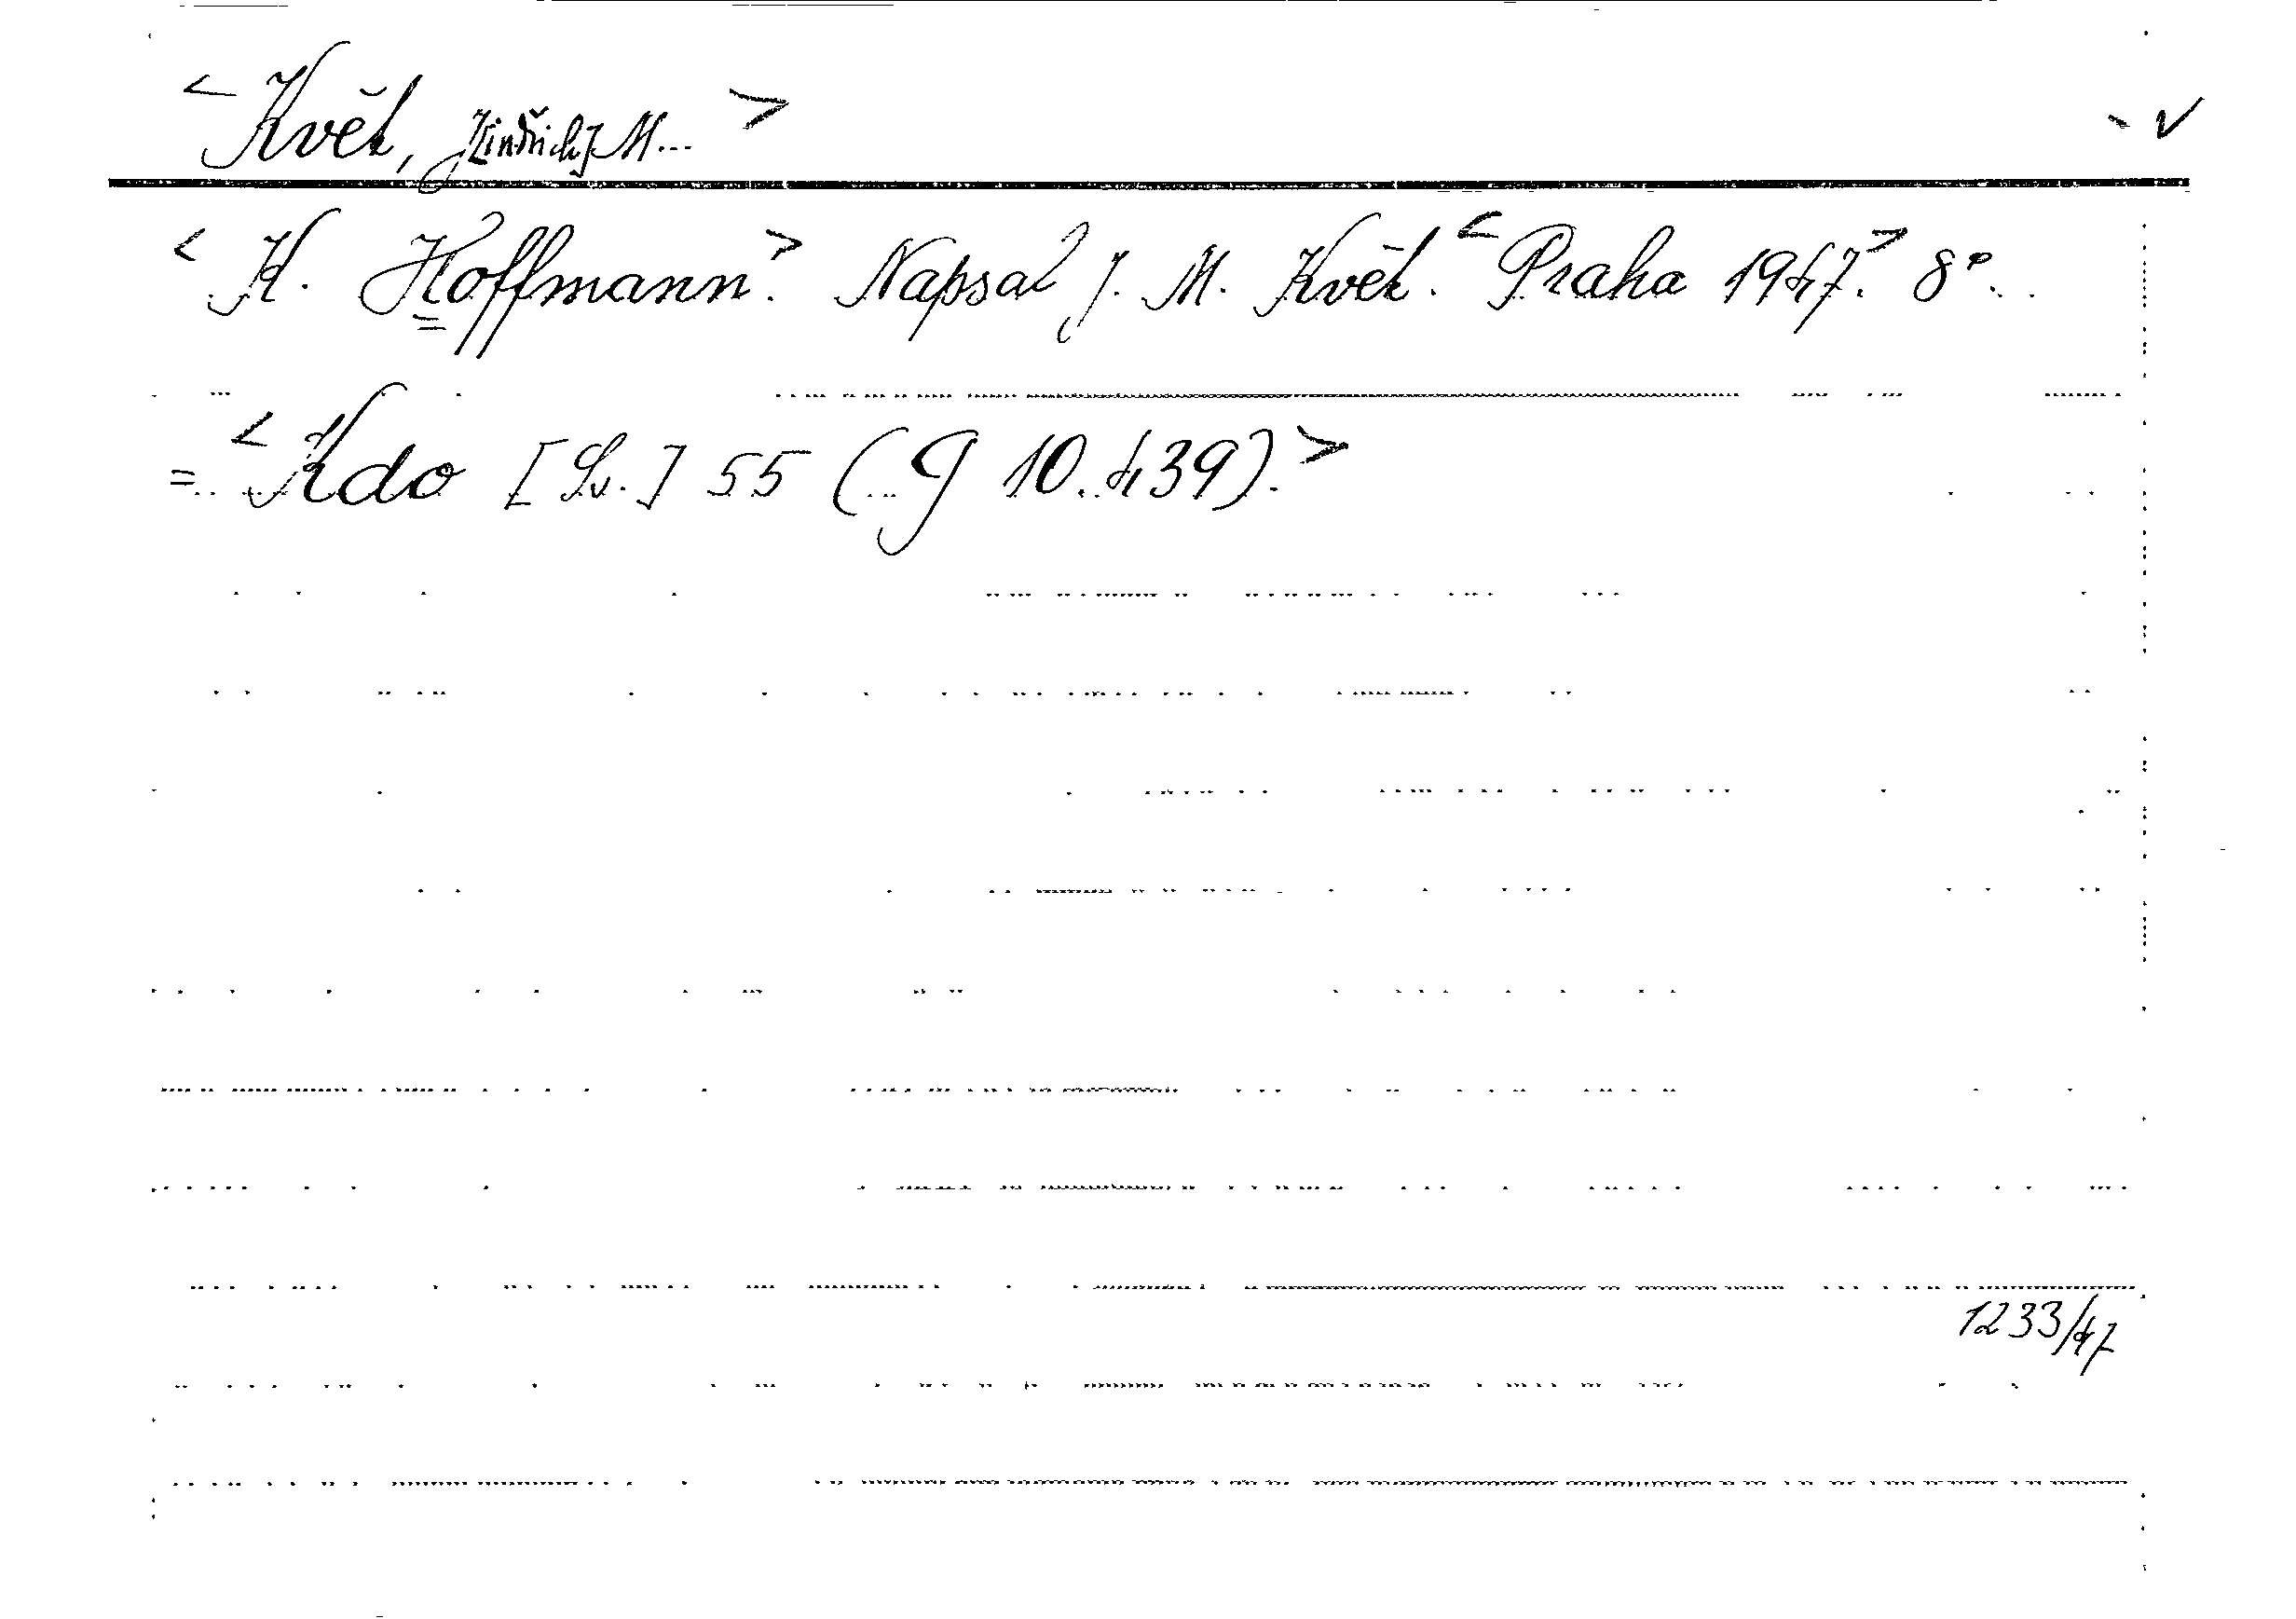 < Květ, J[indřich] M... > - √
< K. Hoffmann. > Napsal J. M. Květ. < Praha 1947. > 8°.
= < Kdo [Sv.] 55 (G 10.439). >
1233/47